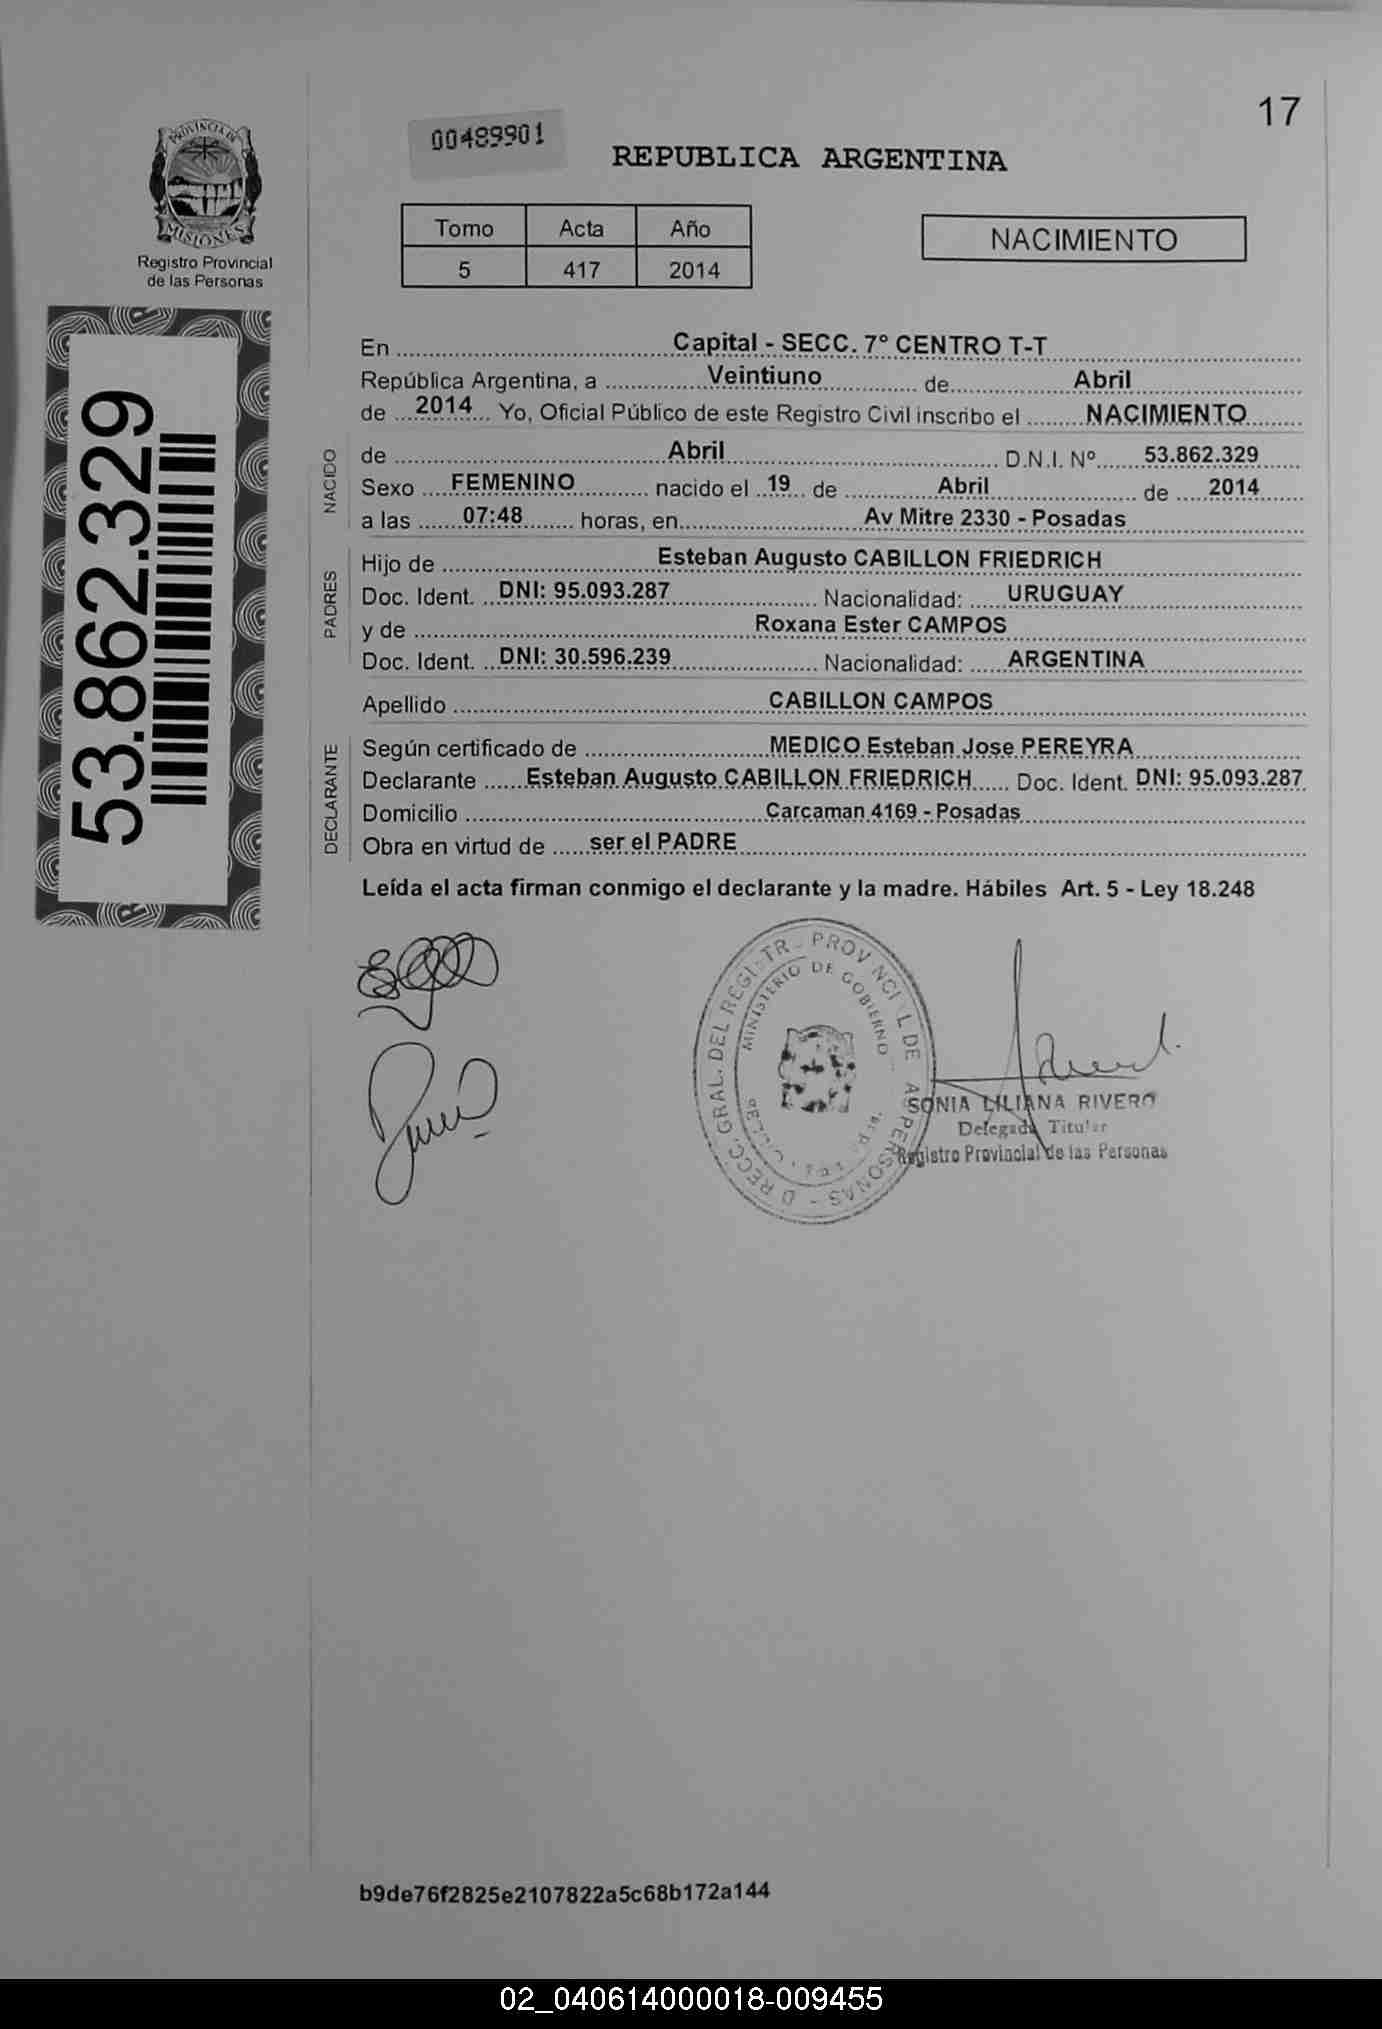 17
00489901
REPUBLICA ARGENTINA
PROVINCIA DE
MISIONES
Registro Provincial
de las Personas
Tomo Acta Año
5 417 2014
NACIMIENTO
53.862.329
En Capital - SECC. 7° CENTRO T-T
República Argentina, a Veintiuno de Abril
de 2014 Yo, Oficial Público de este Registro Civil inscribo el NACIMIENTO
NACIDO
de Abril D.N.I. Nº 53.862.329
Sexo FEMENINO nacido el 19 de Abril de 2014
a las 07:48 horas, en Av Mitre 2330 - Posadas
PADRES
Hijo de Esteban Augusto CABILLON FRIEDRICH
Doc. Ident. DNI: 95.093.287 Nacionalidad: URUGUAY
y de Roxana Ester CAMPOS
Doc. Ident. DNI: 30.596.239 Nacionalidad: ARGENTINA
Apellido CABILLON CAMPOS
DECLARANTE
Según certificado de MEDICO Esteban Jose PEREYRA
Declarante Esteban Augusto CABILLON FRIEDRICH Doc. Ident. DNI: 95.093.287
Domicilio Carcaman 4169 - Posadas
Obra en virtud de ser el PADRE
Leída el acta firman conmigo el declarante y la madre. Hábiles Art. 5 - Ley 18.248
MINISTERIO DE GOBIERNO
SONIA LILIANA RIVERO
Delegada Titular
Registro Provincial de las Personas
b9de76f2825e2107822a5c68b172a144
02_040614000018-009455